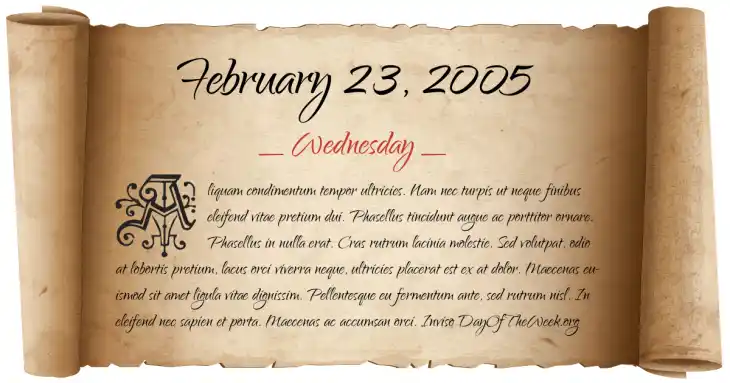 February 23, 2005
— Wednesday —
Aliquam condimentum tempor ultricies. Nam nec turpis ut neque finibus
eleifend vitae pretium dui. Phasellus tincidunt augue ac porttitor ornare.
Phasellus in nulla erat. Cras rutrum lacinia molestie. Sed volutpat, odio
at lobortis pretium, lacus orci viverra neque, ultricies placerat est ex at dolor. Maecenas eu-
ismod sit amet ligula vitae dignissim. Pellentesque eu fermentum ante, sed rutrum nisl. In
eleifend nec sapien et porta. Maecenas ac accumsan orci. Inviso DayOfTheWeek.org